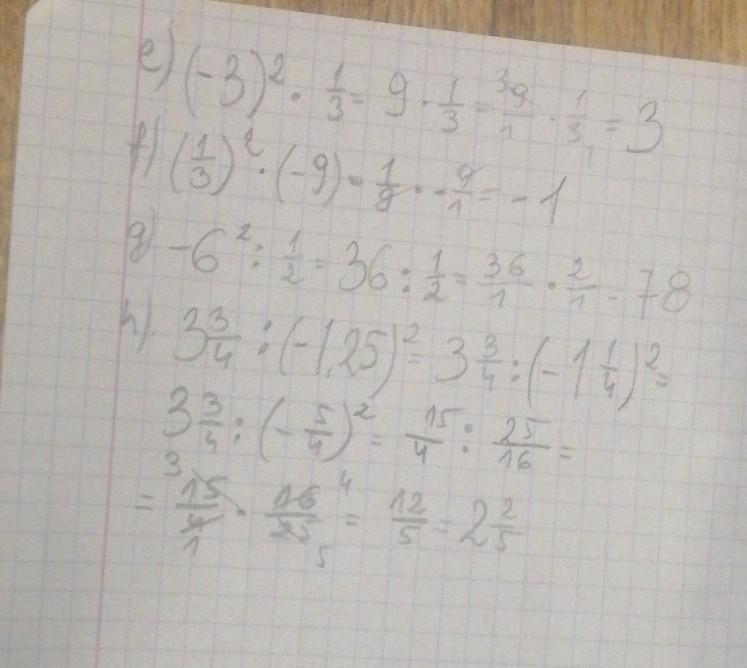 e) (-3)² · 1/3 = 9 · 1/3 = 9/1 · 1/3 = 3
f) (1/3)² · (-9) = 1/9 · -9/1 = -1
g) -6² : 1/2 = 36 : 1/2 = 36/1 · 2/1 = 78
h) 3 3/4 : (-1,25)² = 3 3/4 : (-1 1/4)² =
3 3/4 : (-5/4)² = 15/4 : 25/16 =
= 15/4 · 16/25 = 12/5 = 2 2/5